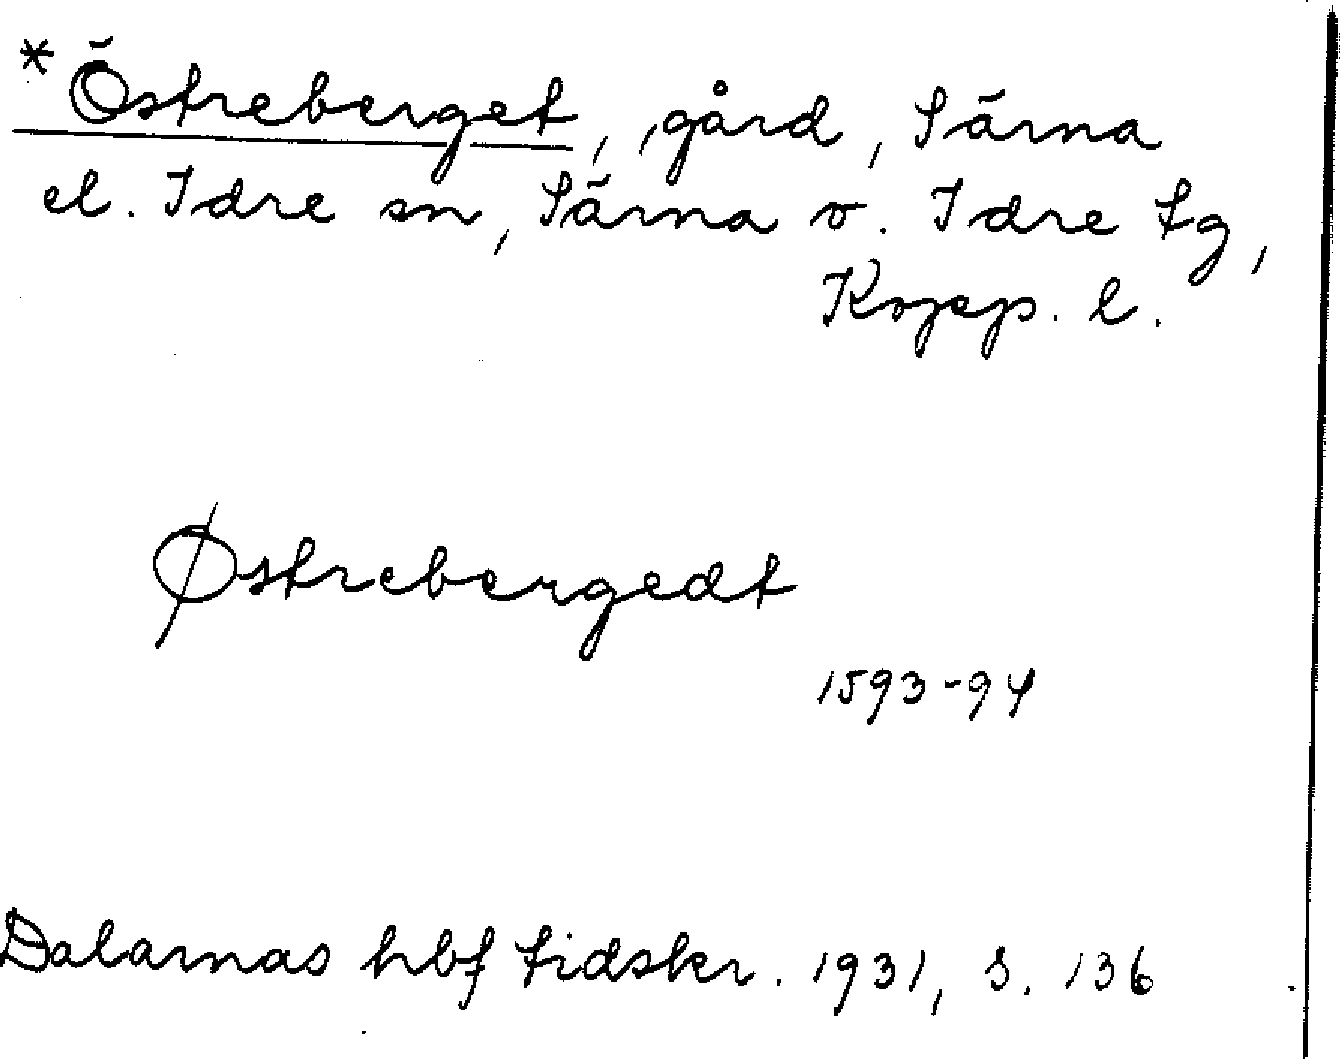 *Östreberget, gård, Särna
el. Idre sn, Särna o. Idre tg,
Kopp. l.
Østrebergedt
1593-94
Dalarnas hbf tidskr. 1931, s. 136